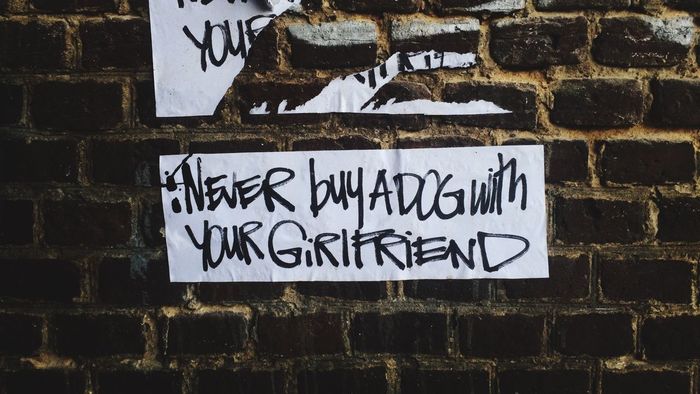 YOUR
:NEVER buy A DOG with
YOUR GiRlFRiEND